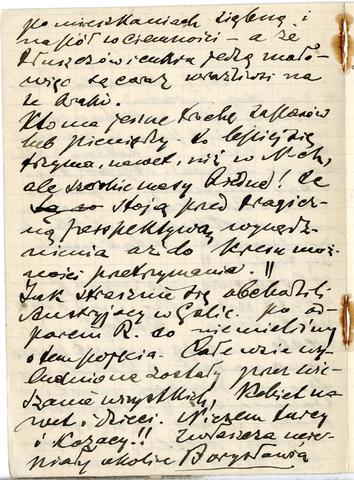 po mieszkaniach ziębną i
na pół w ciemności – a że
tłuszczów i cukru jedzą mało –
więc są coraz wrażliwsi na
te braki.
Kto ma jeszcze trochę zapasów
lub pieniędzy – to lepiej się
trzyma, nawet, niż w N-ch,
ale szerokie masy biedne! Te
stoją przed tragicz-
ną perspektywą wynędz-
nienia aż do kresu moż-
ności przetrzymania. !!
Jak strasznie się obchodzili
Austryjacy w Galic. po od-
parciu R. to nie mieliśmy
o tem pojęcia. Całe wsie wy-
ludnione zostały przez wie-
szanie wszystkich, kobiet na-
wet i dzieci. Niczem turcy
i Kozacy!! Zwłaszcza
okolice Borysławia